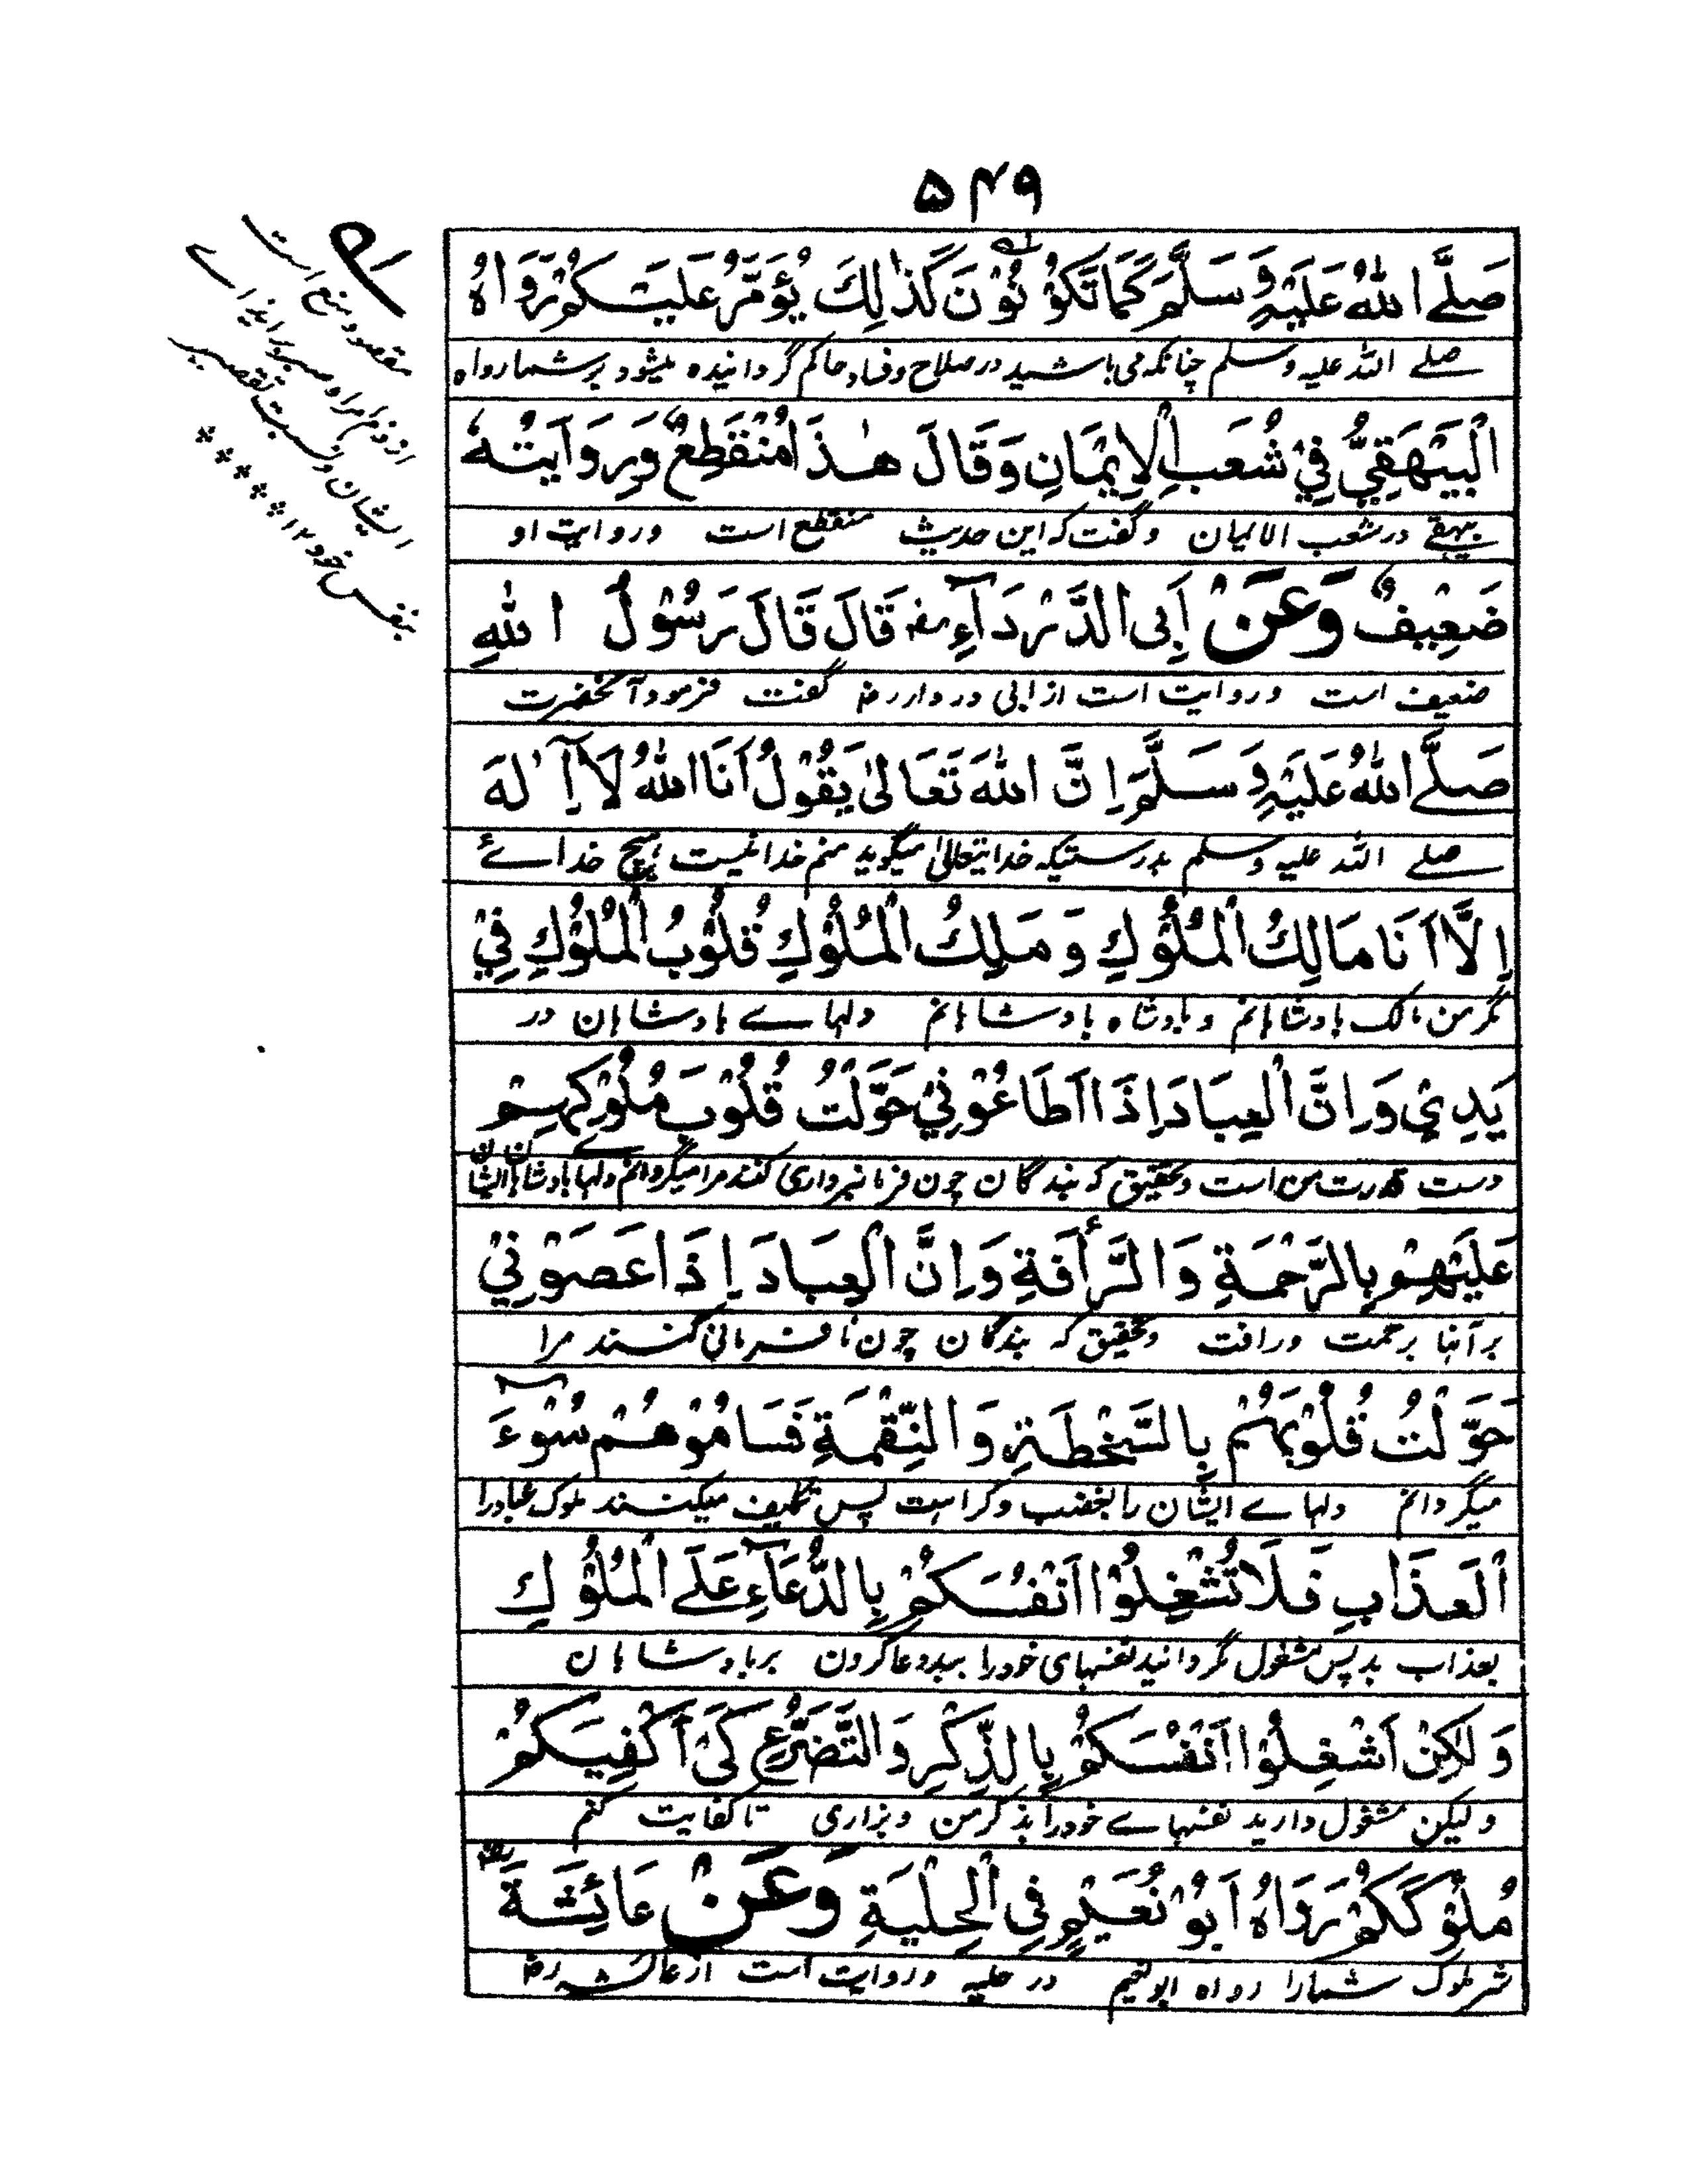 ۵۴۹
صَلَّے اللهُ عَلَيْهِ وَسَلَّمَ كَمَا تَكُوْنُوْنَ كَذٰلِكَ يُؤَمَّرُ عَلَيْكُمْ رَوَاهُ
صلے الله علیه وسلم چنانکه می باشید در صلاح وفساد حاکم گردانیده میشود بر شما رواه
الْبَيْهَقِيُّ فِيْ شُعَبِ الْاِيْمَانِ وَقَالَ هٰذَا مُنْقَطِعٌ وَرِوَايَتُهٗ
بیهقے در شعب الایمان وگفت که این حدیث منقطع است وروایت او
ضَعِيْفٌ وَعَنْ اَبِى الدَّرْدَآءِ رضـ قَالَ قَالَ رَسُوْلُ اللهِ
ضعیف است وروایت است از ابی درداء رضـ گفت فرمود آنحضرت
صَلَّے اللهُ عَلَيْهِ وَسَلَّمَ اِنَّ اللهَ تَعَالىٰ يَقُوْلُ اَنَا اللهُ لَآ اِلٰهَ
صلے الله علیه وسلم بدرستیکه خدایتعالیٰ میگوید منم خدا نیست هیچ خداۓ
اِلَّا اَنَا مَالِكُ الْمُلُوْكِ وَمَلِكُ الْمُلُوْكِ قُلُوْبُ الْمُلُوْكِ فِيْ
مگر من مالک بادشاهانم و بادشاه بادشاهانم دلهاے بادشاهان در
يَدِيْ وَاِنَّ الْعِبَادَ اِذَا اَطَاعُوْنِيْ حَوَّلْتُ قُلُوْبَ مُلُوْكِهِمْ
دست قدرت من است وتحقیق که بندگان چون فرمانبرداری کنند مرا میگردانم دلهاے بادشاهان ایشان
عَلَيْهِمْ بِالرَّحْمَةِ وَالرَّأْفَةِ وَاِنَّ الْعِبَادَ اِذَا عَصَوْنِيْ
بر آنها برحمت ورافت وتحقیق که بندگان چون نافرمانی کنند مرا
حَوَّلْتُ قُلُوْبَهُمْ بِالسَّخْطَةِ وَالنِّقْمَةِ فَسَامُوْهُمْ سُوْٓءَ
میگردانم دلهاے ایشان را بغضب وکراهت پس تکلیف میکنند ملوک عباد را
الْعَذَابِ فَلَا تُشْغِلُوْا اَنْفُسَكُمْ بِالدُّعَآءِ عَلَے الْمُلُوْكِ
بعذاب بد پس مشغول مگردانید نفسهای خود را ببددعا کردن بر بادشاهان
وَلٰكِنْ اَشْغِلُوْا اَنْفُسَكُمْ بِالذِّكْرِ وَالتَّضَرُّعِ كَىْ اَكْفِيَكُمْ
ولیکن مشغول دارید نفسهاے خود را بذکر من وبزاری تا کفایت کنم
مُلُوْكَكُمْ رَوَاهُ اَبُوْ نُعَيْمٍ فِى الْحِلْيَةِ وَعَنْ عَائِشَةَ رضـ
شر ملوک شما را رواه ابو نعیم در حلیه وروایت است از عائشه رضـ
مقصود منع است
ایشان ونسبت تقصیر
بنفس خود ۱۲